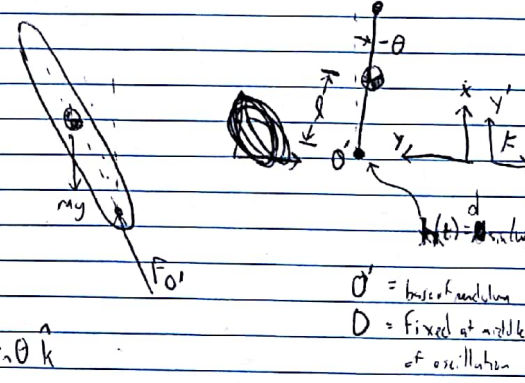 -θ
l
O'
ẋ
y'
y
mg
F_O'
(t) = d sin(w
O' = base of pendulum
O = fixed at middle
of oscillation
nθ k̂